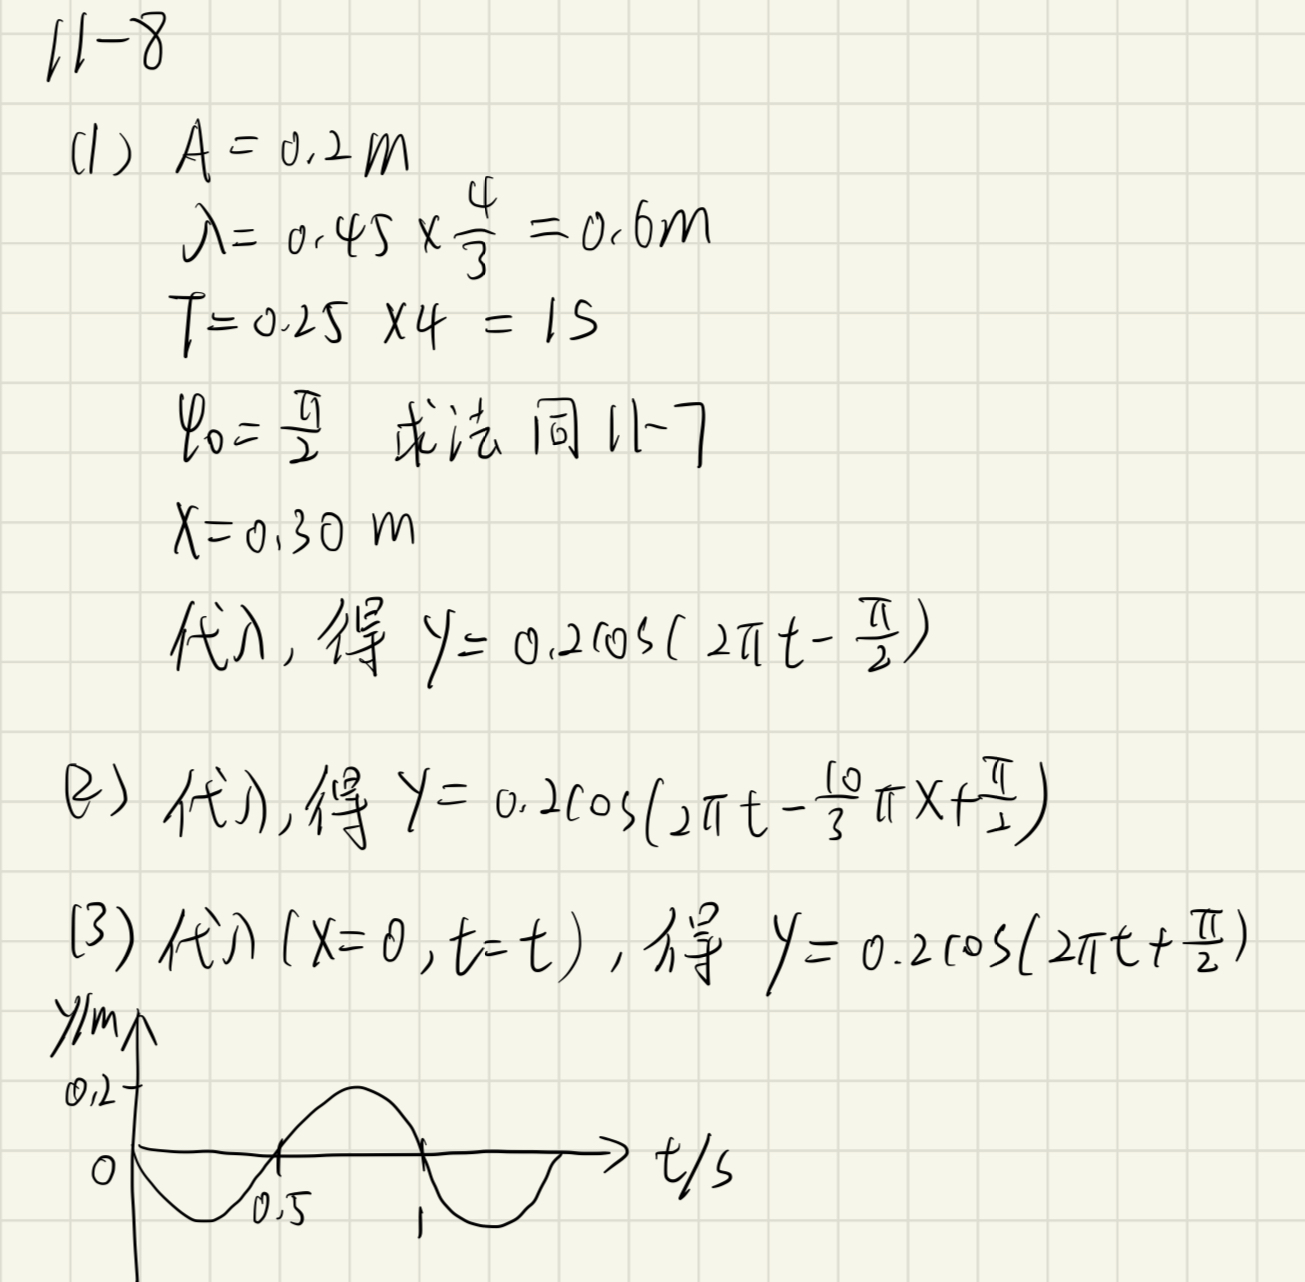 11-8
(1) A = 0.2m
λ = 0.45 × 4/3 = 0.6m
T = 0.25 × 4 = 1s
φ₀ = π/2 求法同11-7
x = 0.30 m
代入, 得 y = 0.2cos(2πt - π/2)
(2) 代入, 得 y = 0.2cos(2πt - 10/3 πx + π/2)
(3) 代入(x=0, t=t), 得 y = 0.2cos(2πt + π/2)
y/m
0.2
0
0.5
1
t/s